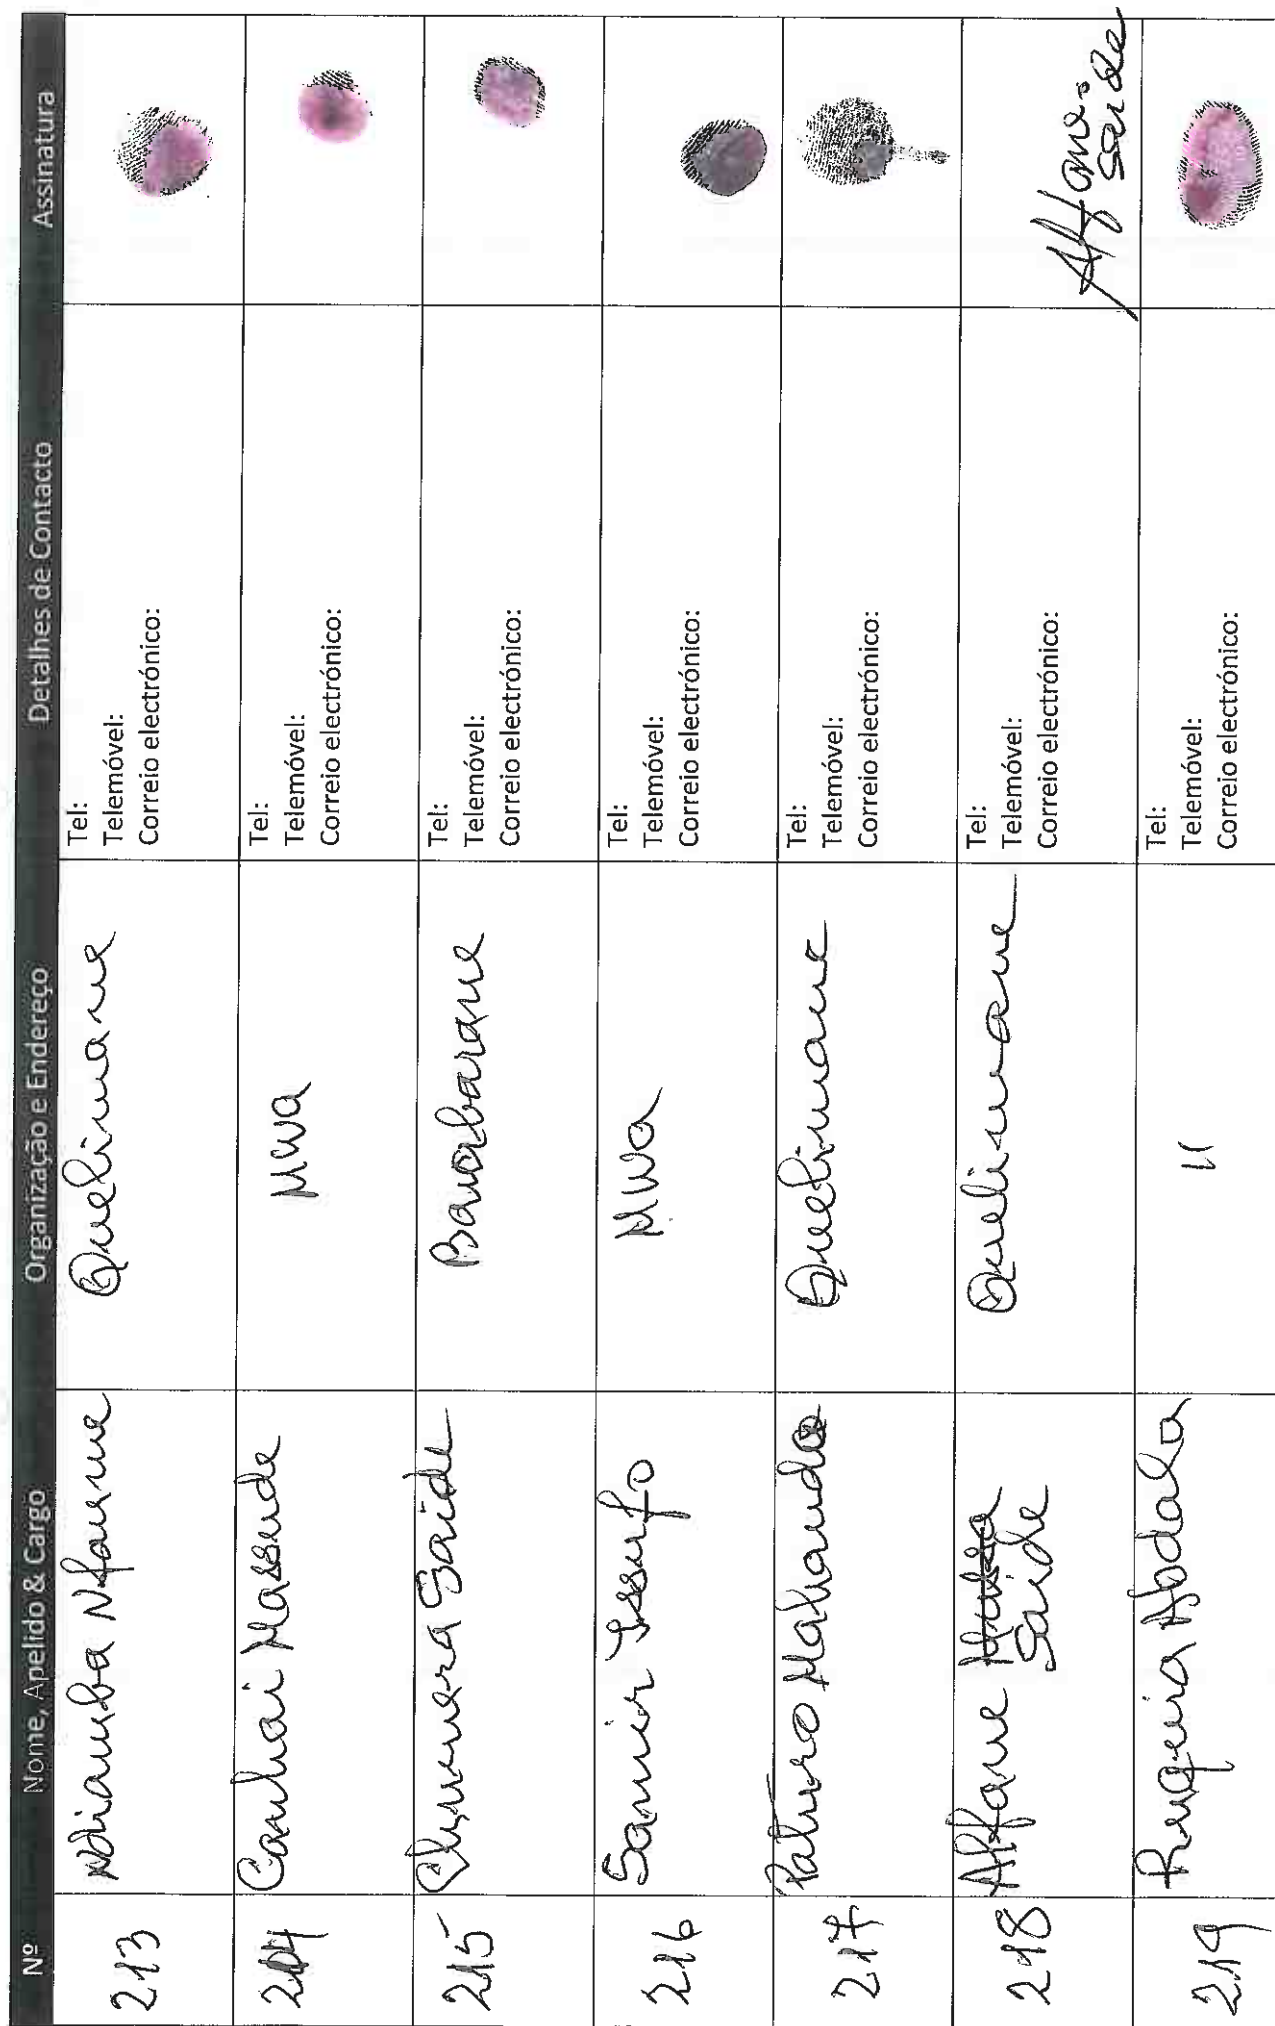 Nº Nome, Apelido & Cargo Organização e Endereço Detalhes de Contacto Assinatura
213 Ndiamba Nfaume Quelimane Tel:
Telemóvel:
Correio electrónico:
214 Canhai Massude Mwa Tel:
Telemóvel:
Correio electrónico:
215 Chumera Saide Barabarane Tel:
Telemóvel:
Correio electrónico:
216 Samir Issufo Mwa Tel:
Telemóvel:
Correio electrónico:
217 Paturo Mahando Quelimane Tel:
Telemóvel:
Correio electrónico:
218 Alfane Saide Quelimane Tel:
Telemóvel:
Correio electrónico:
Saide
219 Ruqeira Abdala " Tel:
Telemóvel:
Correio electrónico: